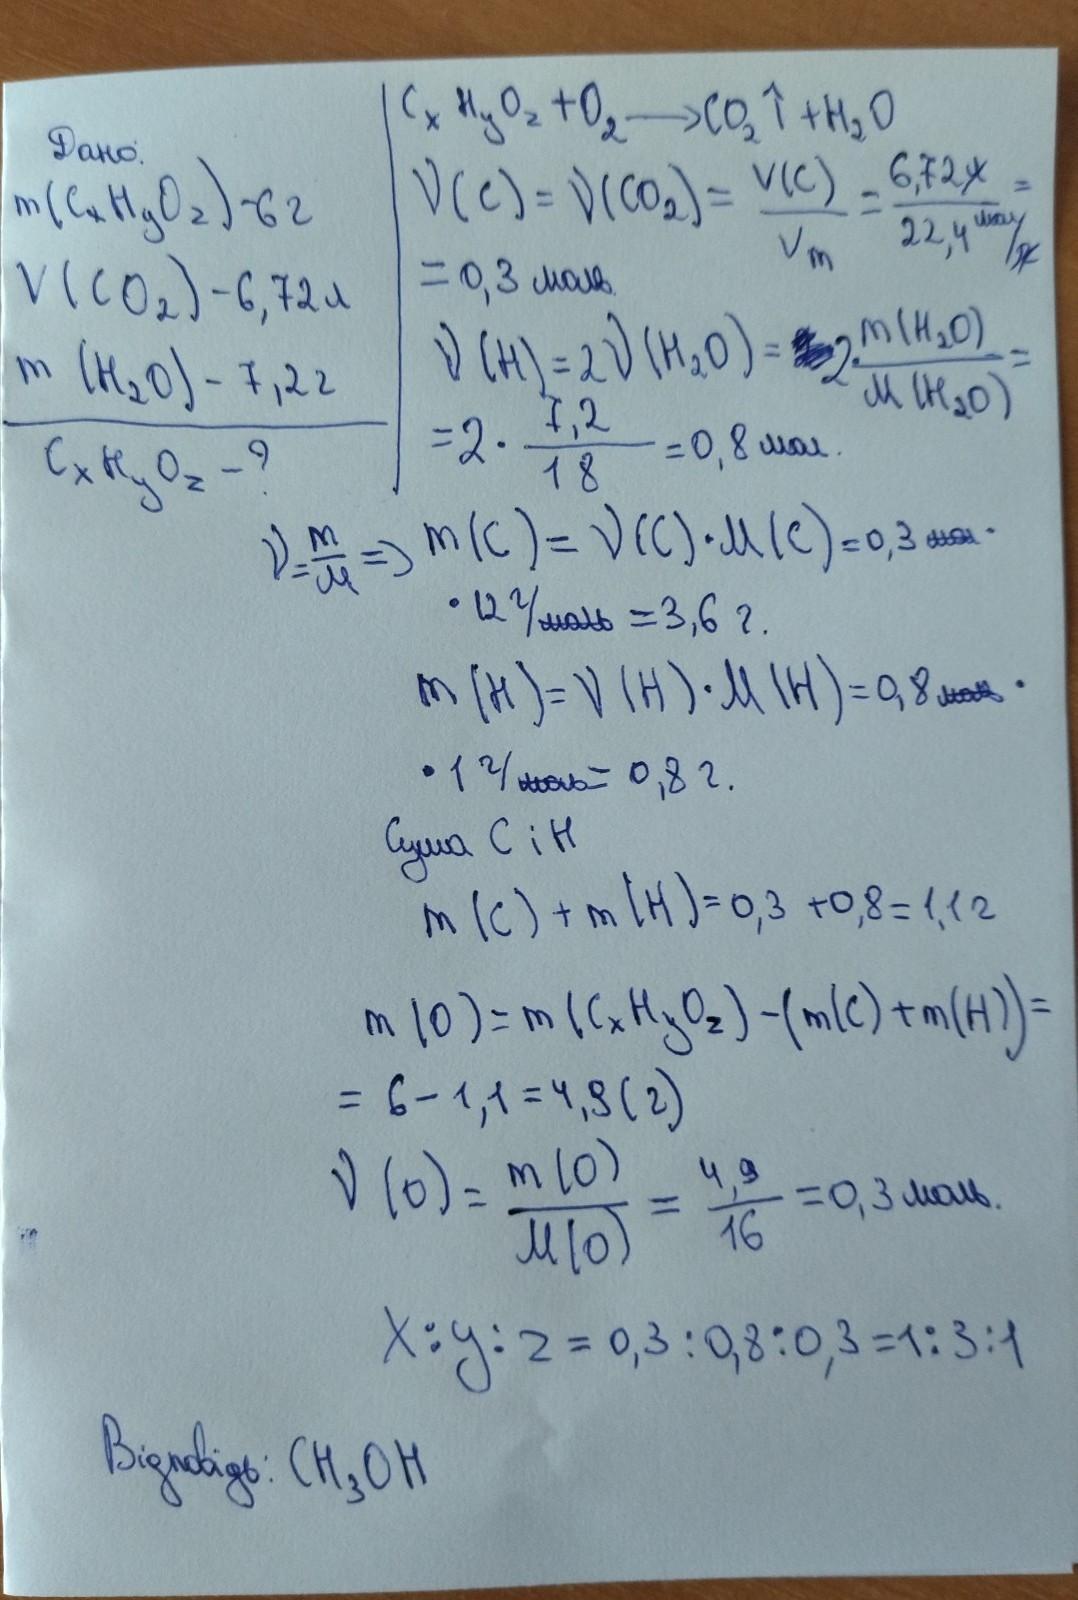 Дано:
m(CxHyOz) - 6 г
V(CO₂) - 6,72 л
m(H₂O) - 7,2 г
CxHyOz - ?
CxHyOz + O₂ → CO₂↑ + H₂O
ν(C) = ν(CO₂) = V(C)/Vm = 6,72 л/22,4 моль/л =
= 0,3 моль.
ν(H) = 2ν(H₂O) = 2·m(H₂O)/M(H₂O) =
= 2 · 7,2/18 = 0,8 мол.
ν = m/M => m(C) = ν(C)·M(C) = 0,3 мол ·
· 12 г/моль = 3,6 г.
m(H) = ν(H)·M(H) = 0,8 мол ·
· 1 г/моль = 0,8 г.
Сума C і H
m(C) + m(H) = 0,3 + 0,8 = 1,1 г
m(O) = m(CxHyOz) - (m(C) + m(H)) =
= 6 - 1,1 = 4,9 (г)
ν(O) = m(O)/M(O) = 4,9/16 = 0,3 моль.
X : y : z = 0,3 : 0,8 : 0,3 = 1 : 3 : 1
Відповідь: CH₃OH